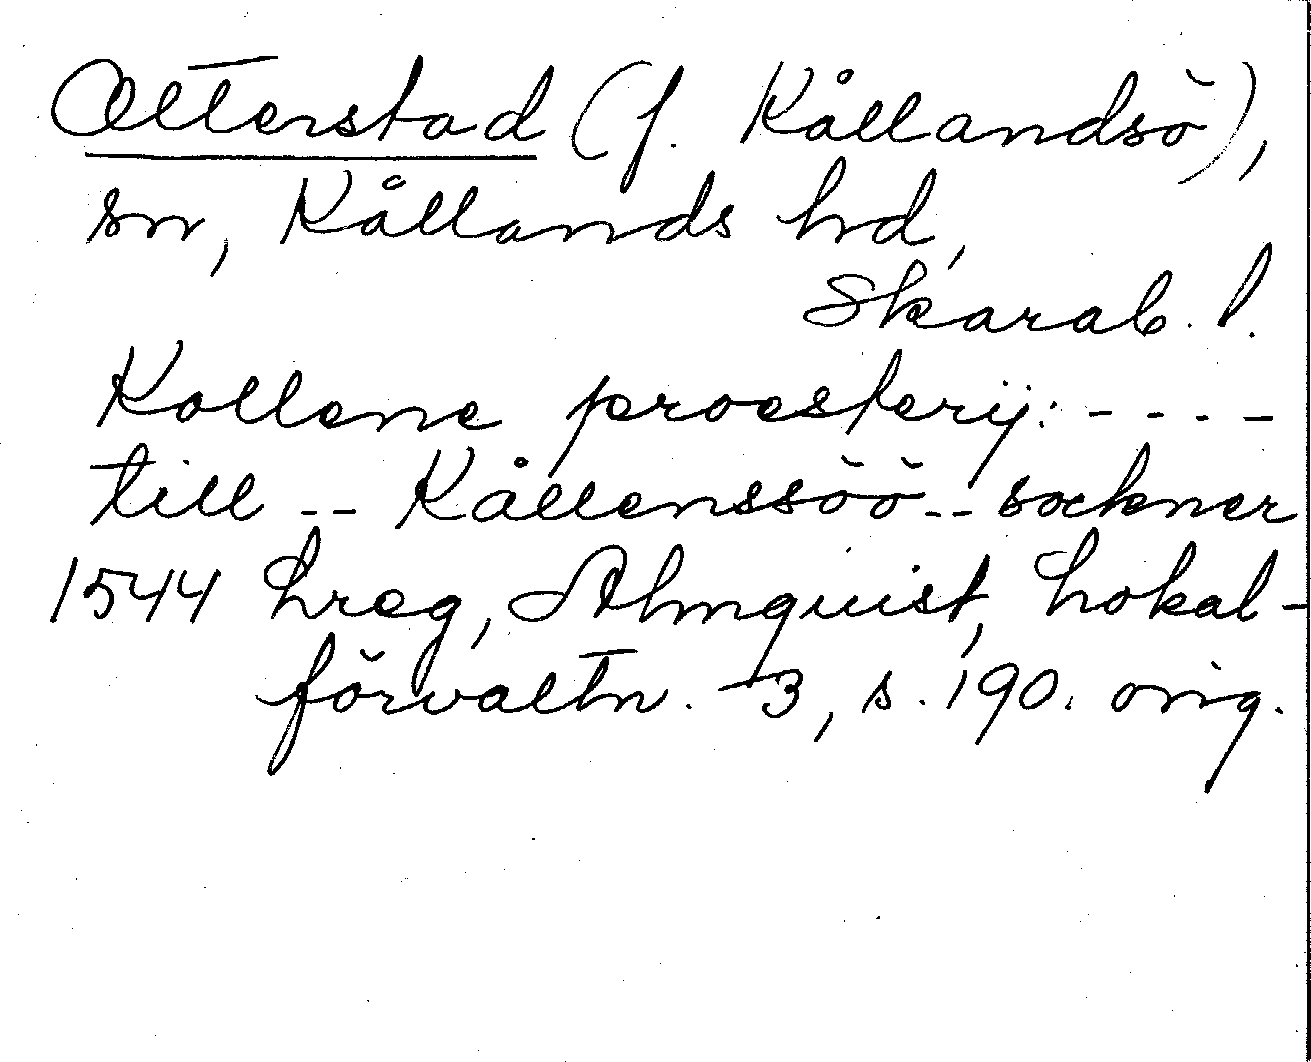 Otterstad (f. Kållandsö),
sn, Kållands hd,
Skarab. l.
Kollene proesterij: - - - -
till -- Kållenssöö -- sockner
1544 hreg, Almquist, Lokal-
förvaltn. 3, s. 190. orig.